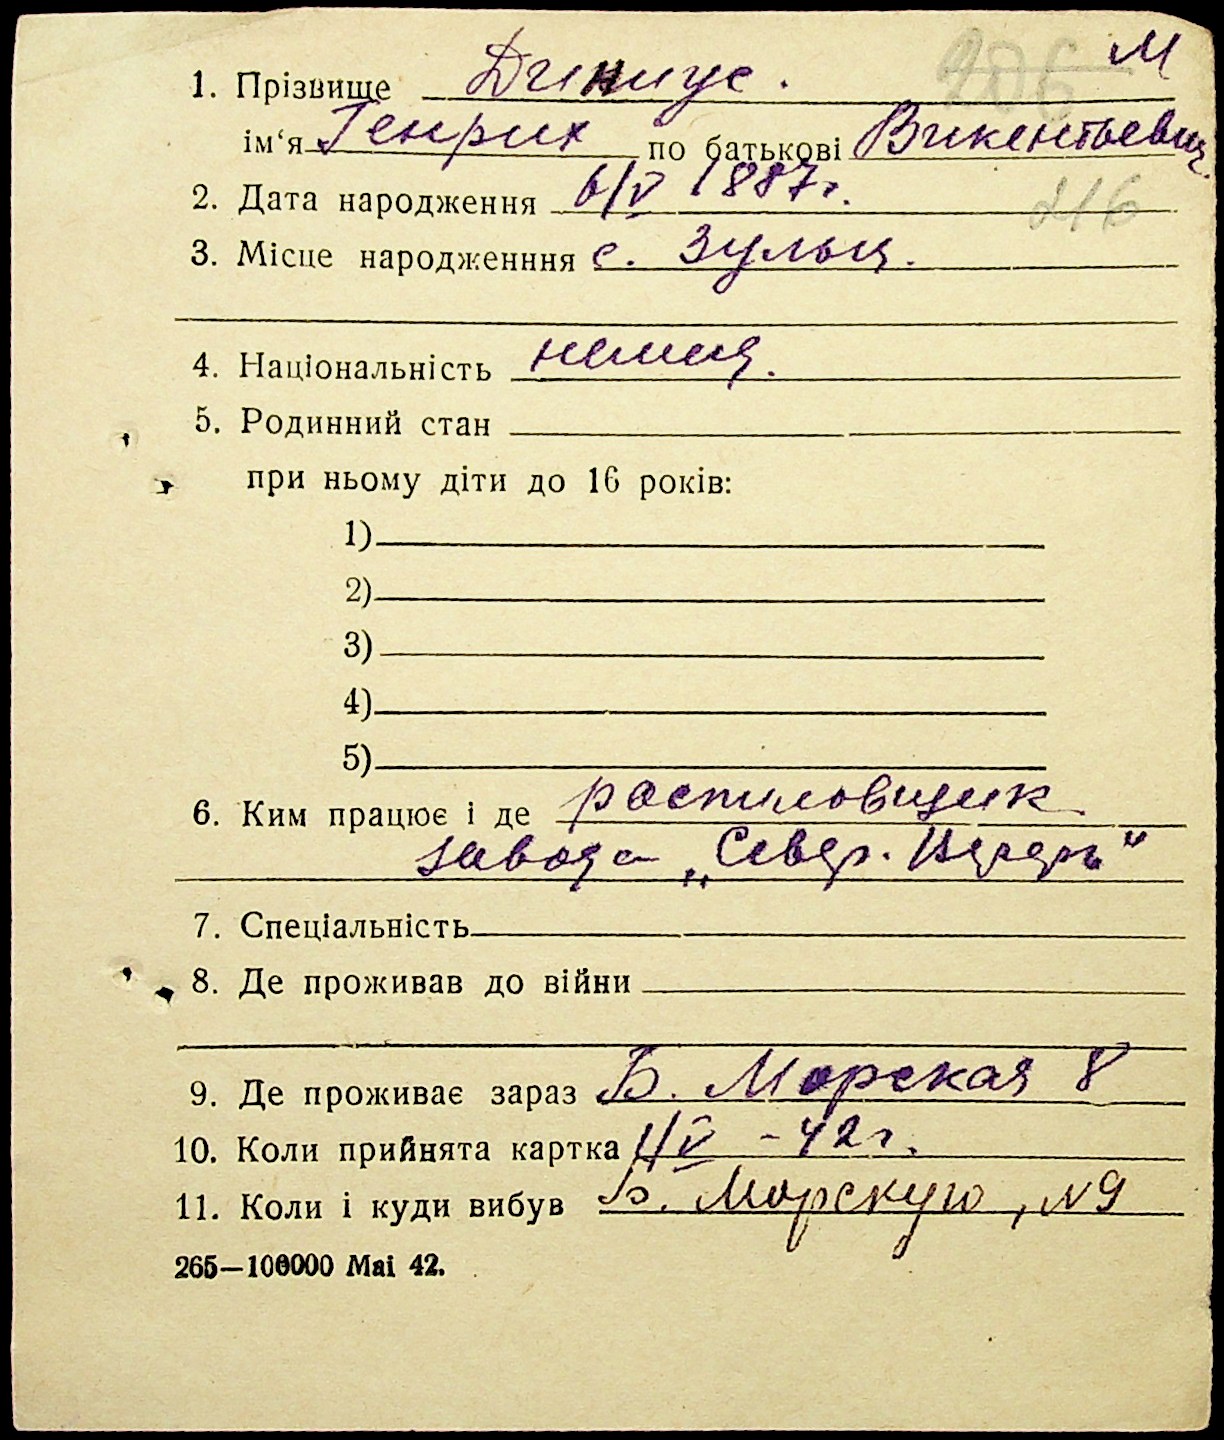 206 М
1. Прізвище Дининус.
ім‘я Генрих по батькові Викентьевич
2. Дата народження 6/V 1887г. 216
3. Місце народженння с. Зульц.
4. Національність немец.
5. Родинний стан
при ньому діти до 16 років:
1)
2)
3)
4)
5)
6. Ким працює і де распиловщик
завода „Север.
7. Спеціальність
8. Де проживав до війни
9. Де проживає зараз Б. Морская 8
10. Коли прийнята картка /V -42г.
11. Коли і куди вибув Б. Морскую, №9
265—100000 Mai 42.